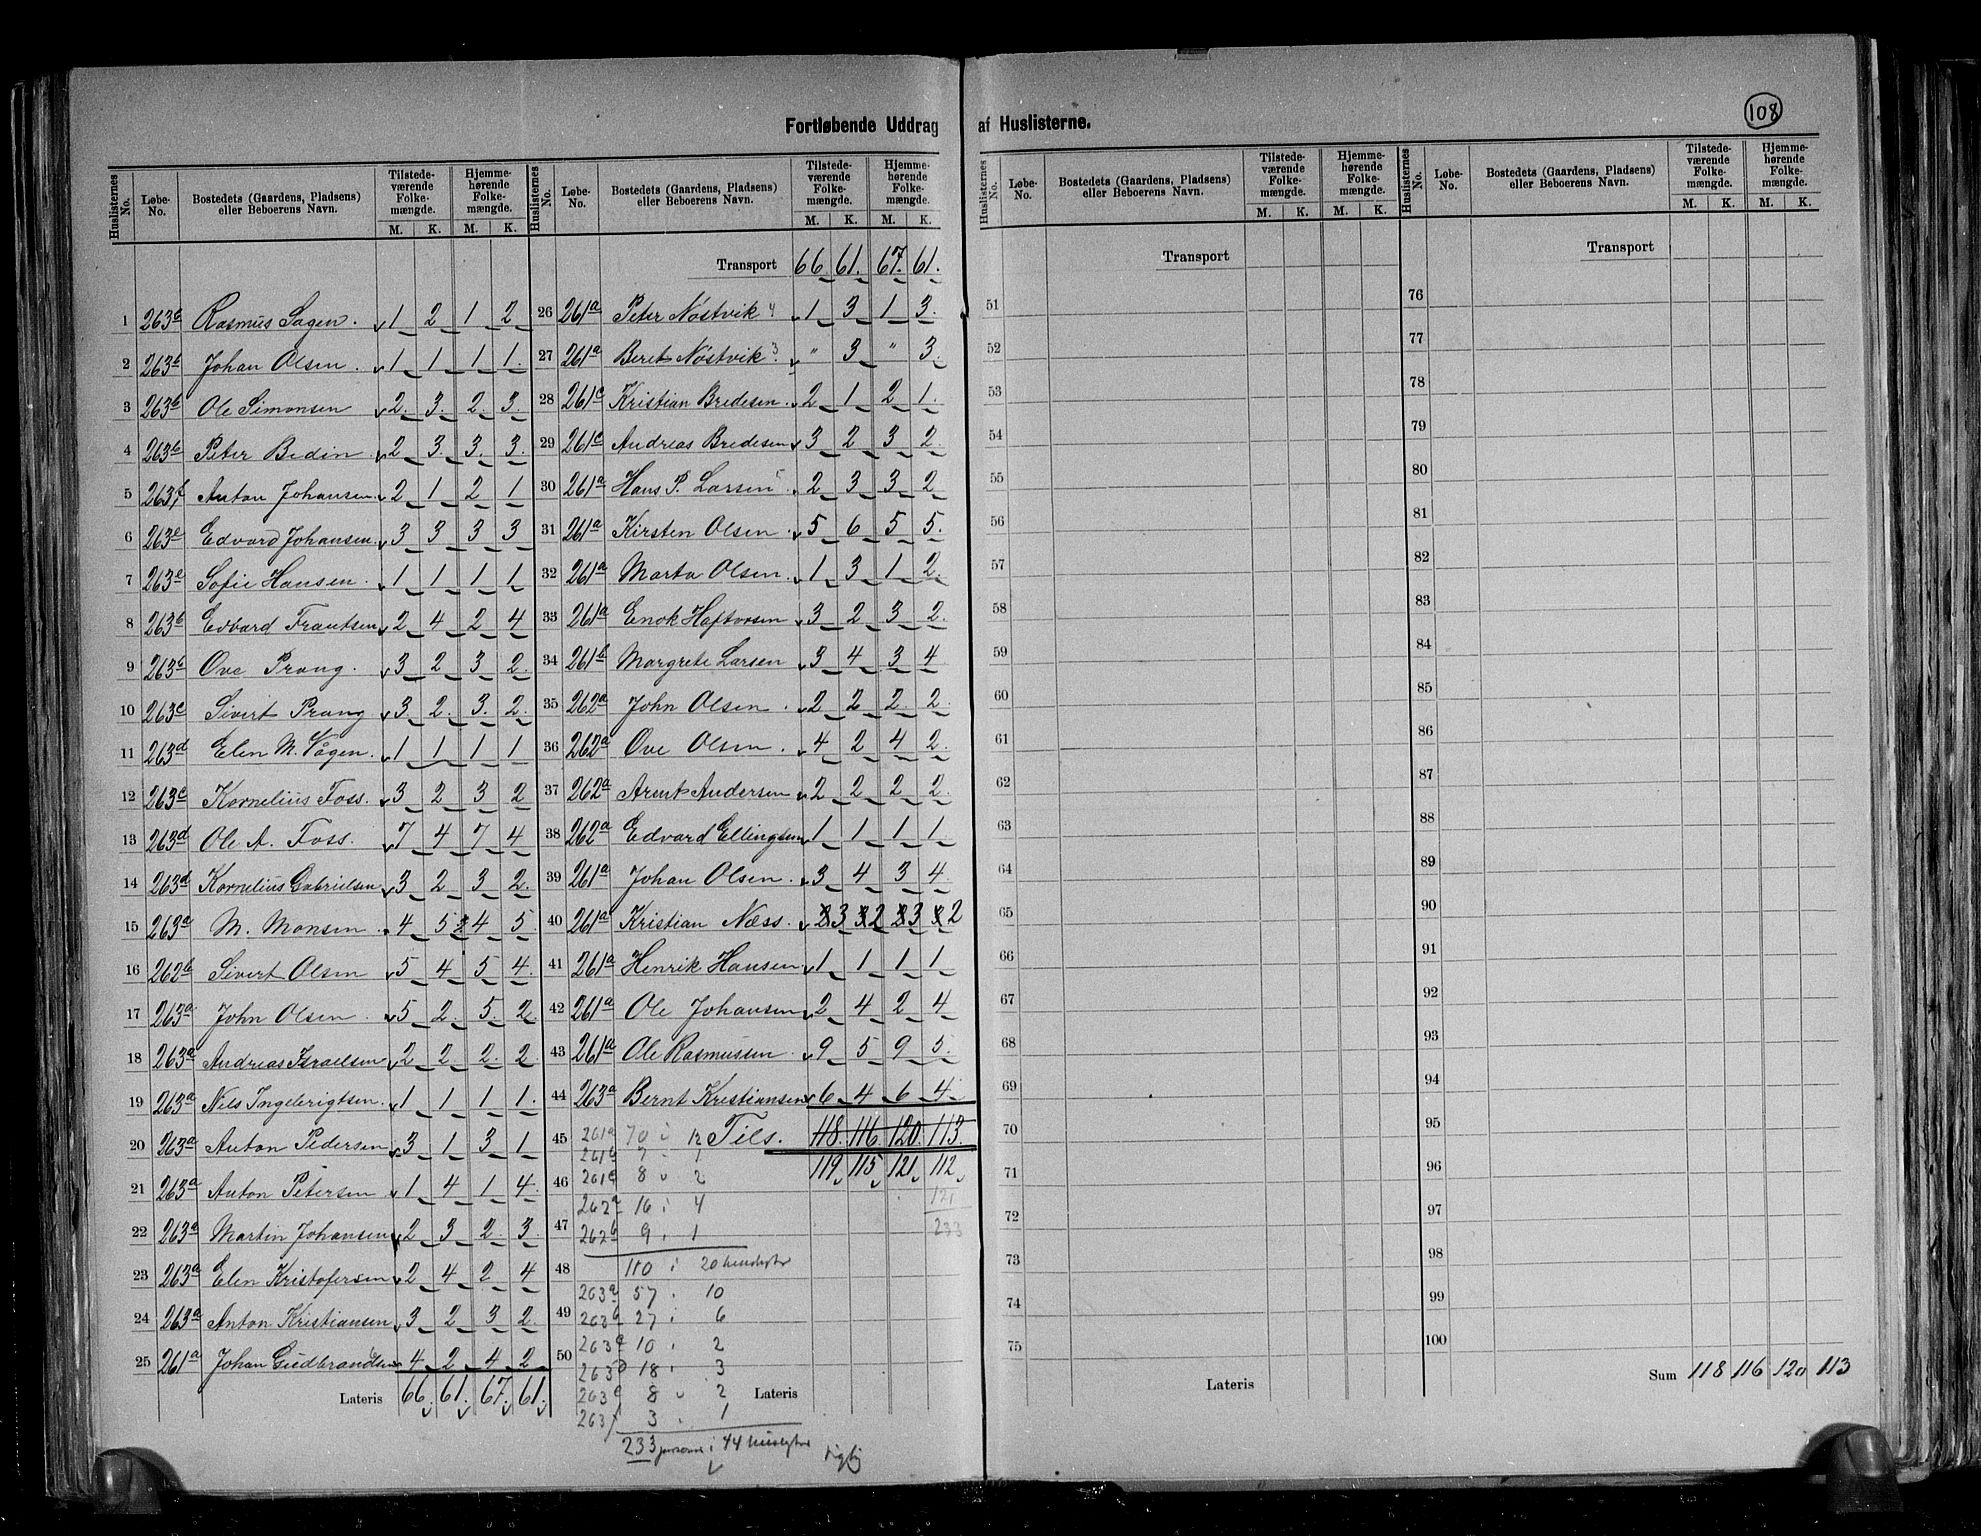 108
Fortløbende Uddrag af Huslisterne.
Huslisternes No. | Løbe-No. | Bostedets (Gaardens, Pladsens) eller Beboerens Navn. | Tilstedeværende Folkemængde. M. K. | Hjemmehørende Folkemængde. M. K.
1 263b Rasmus Sagen. 1 2 1 2
2 263b Johan Olsen. 1 1 1 1
3 263b Ole Simonsen 2 3 2 3
4 263b Peter Bedin 2 3 3 3
5 263f Anton Johansen 2 1 2 1
6 263e Edvard Johansen 3 3 3 3
7 263e Sofie Hansen. 1 1 1 1
8 263b Edvard Frantsen 2 4 2 4
9 263b Ove Prang. 3 2 3 2
10 263c Sivert Prang 3 2 3 2
11 263d Elen M. Vågen. 1 1 1 1
12 263c Kornelius Foss. 3 2 3 2
13 263d Ole A. Foss. 7 4 7 4
14 263d Kornelius Gabrielsen 3 2 3 2
15 263a M. Monsen 4 5 4 5
16 262b Sivert Olsen 5 4 5 4
17 263a John Olsen 5 2 5 2
18 263a Andreas Israelsen 2 2 2 2
19 263a Nils Ingebrigtsen. 1 1 1 1
20 263a Anton Pedersen 3 1 3 1
21 263a Anton Petersen 1 4 1 4
22 263a Martin Johansen 2 3 2 3
23 263a Elen Kristofersen 2 4 2 4
24 263a Anton Kristiansen 3 2 3 2
25 261a Johan Gudbrandsen 4 2 4 2
Lateris 66 61 67 61
Huslisternes No. | Løbe-No. | Bostedets (Gaardens, Pladsens) eller Beboerens Navn. | Tilstedeværende Folkemængde. M. K. | Hjemmehørende Folkemængde. M. K.
Transport 66 61 67 61
26 261a Peter Nøstvik 4 1 3 1 3
27 261a Beret Nøstvik 3 " 3 " 3
28 261c Kristian Bredesen 2 1 2 1
29 261c Andreas Bredesen 3 2 3 2
30 261a Hans P. Larsen 2 3 3 2
31 261a Kirsten Olsen 5 6 5 5
32 261a Marta Olsen 1 3 1 2
33 261a Enok Haftorsen 3 2 3 2
34 261b Margrete Larsen 3 4 3 4
35 262a John Olsen 2 2 2 2
36 262a Ove Olsen 4 2 4 2
37 262a Arent Andersen 2 2 2 2
38 262a Edvard Ellingsen 1 1 1 1
39 261a Johan Olsen 3 4 3 4
40 261a Kristian Næss. 3 2 3 2
41 261a Henrik Hansen 1 1 1 1
42 261a Ole Johansen 2 4 2 4
43 261a Ole Rasmussen 9 5 9 5
44 263a Bernt Kristiansen 6 4 6 4
45 261a 70 i 12 Tils. 118. 116. 120. 113.
261b 7 " 1 119 115 121 112
46 261c 8 " 2
262a 16 i 4 121
47 262b 9 i 1 233
48 110 i 20 huslister
263a 57 10
49 263b 27 i 6
263c 10 2
50 263d 18 3
263e 8 2 Lateris
263f 3 1
233 personer i 44 huslister rigtig
Huslisternes No. | Løbe-No. | Bostedets (Gaardens, Pladsens) eller Beboerens Navn. | Tilstedeværende Folkemængde. M. K. | Hjemmehørende Folkemængde. M. K.
Transport
51
52
53
54
55
56
57
58
59
60
61
62
63
64
65
66
67
68
69
70
71
72
73
74
75
Lateris
Huslisternes No. | Løbe-No. | Bostedets (Gaardens, Pladsens) eller Beboerens Navn. | Tilstedeværende Folkemængde. M. K. | Hjemmehørende Folkemængde. M. K.
Transport
76
77
78
79
80
81
82
83
84
85
86
87
88
89
90
91
92
93
94
95
96
97
98
99
100
Sum 118 116 120 113